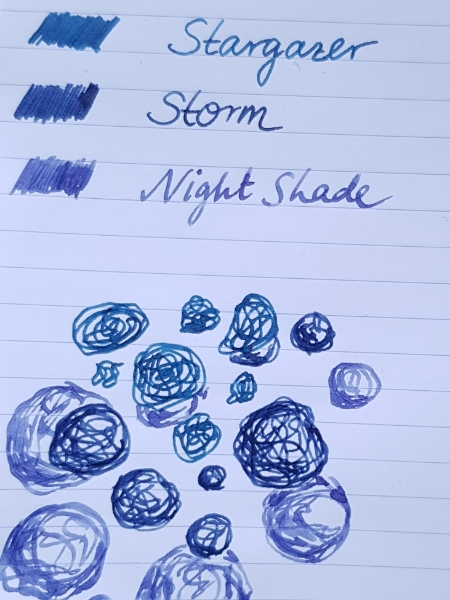 Stargazer
Storm
Night Shade